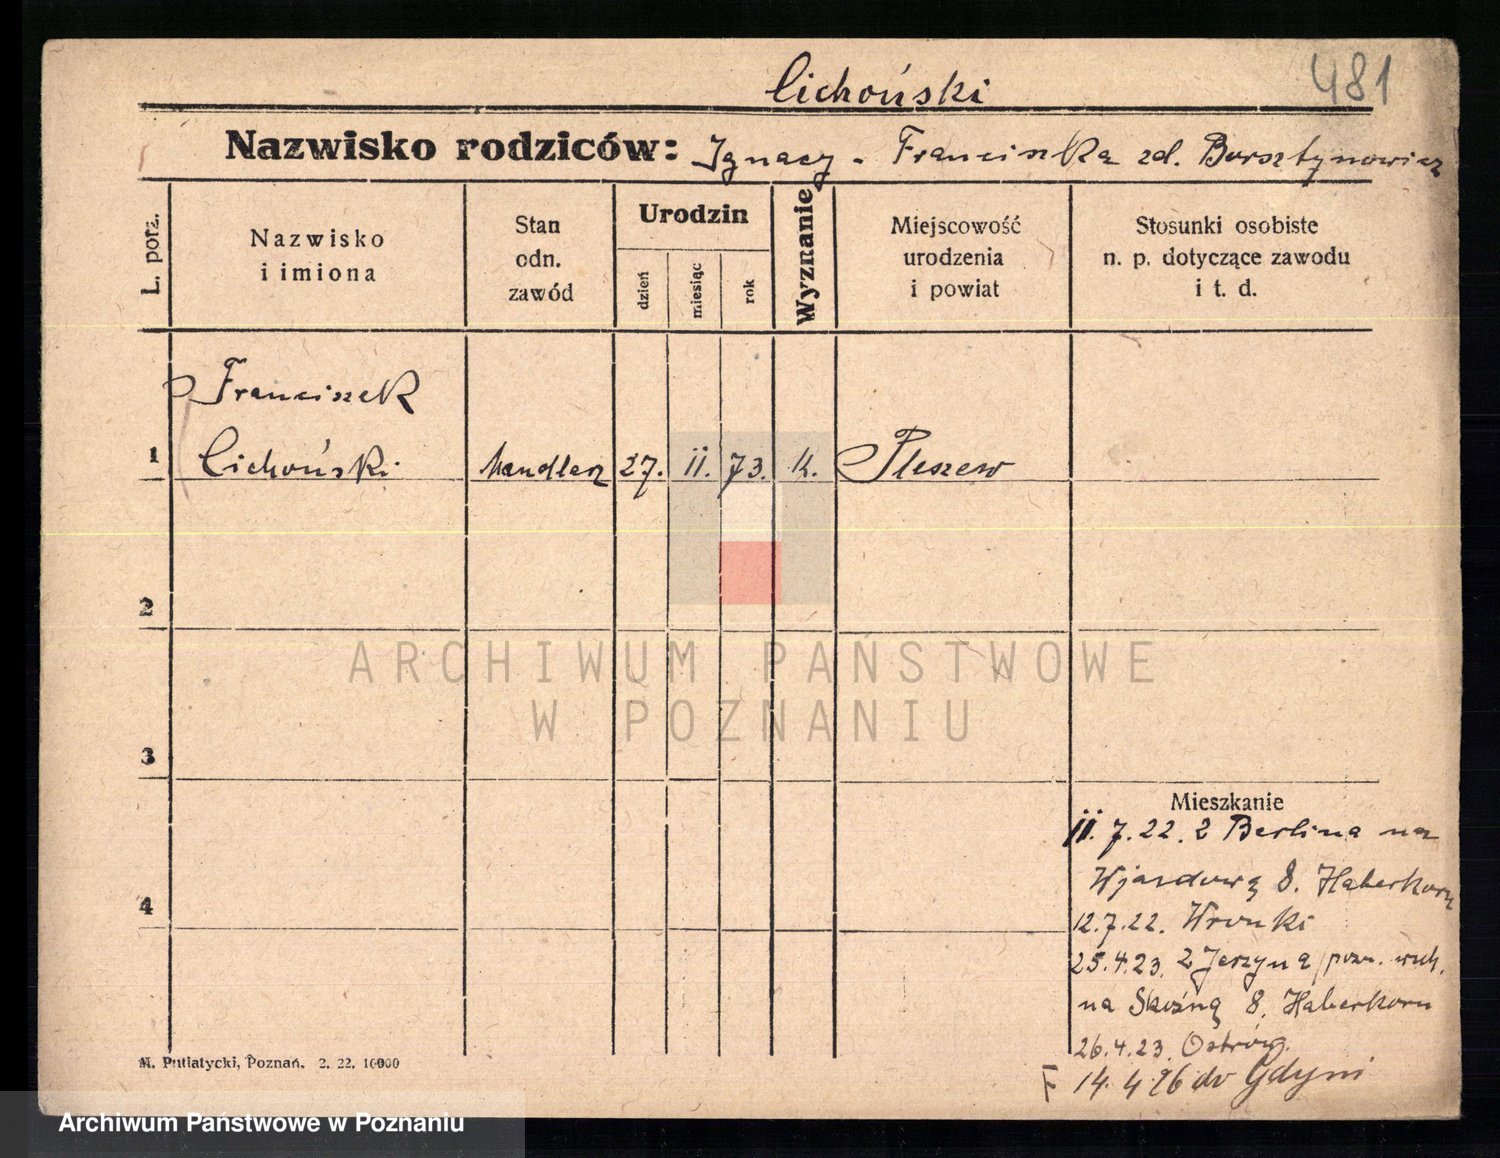 Cichoński
481
Nazwisko rodziców: Ignacy - Franciszka zd. Bursztynowicz
L. porz.
Nazwisko
i imiona
Stan
odn.
zawód
Urodzin
dzień
miesiąc
rok
Wyznanie
Miejscowość
urodzenia
i powiat
Stosunki osobiste
n. p. dotyczące zawodu
i t. d.
Franciszek
1 Cichoński handlarz 27. 11. 73. K. Pleszew
2
3
4
Mieszkanie
11. 7. 22. z Berlina na
Wjazdową 8. Haberkorn
12.7.22. Wronki
25.4.23. z Jerzyna/pozn. wsch.
na Skośną 8. Haberkorn
26.4.23. Ostróg.
F 14. 4 26 do Gdyni
M. Putiatycki, Poznań. 2. 22. 10000
ARCHIWUM PAŃSTWOWE
W POZNANIU
Archiwum Państwowe w Poznaniu